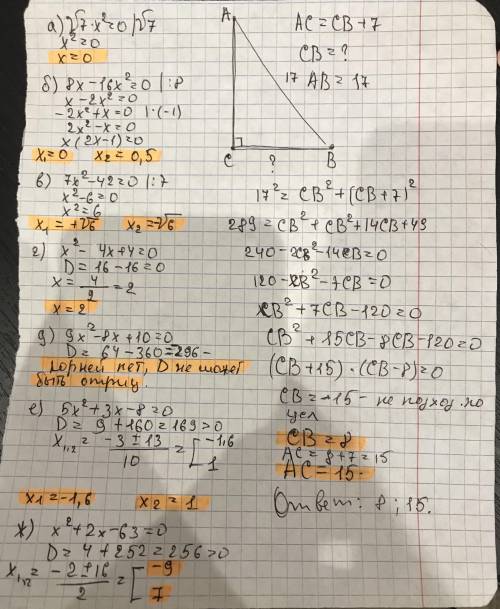 а) √7·x²=0 |√7
x²=0
x=0
б) 8x-16x²=0 |:8
x-2x²=0
-2x²+x=0 |·(-1)
2x²-x=0
x(2x-1)=0
x₁=0 x₂=0,5
в) 7x²-42=0 |:7
x²-6=0
x²=6
x₁=+√6 x₂=-√6
г) x²-4x+4=0
D=16-16=0
x=4/2=2
x=2
д) 9x²-8x+10=0
D=64-360=-296-
корней нет, D не может
быть отриц.
е) 5x²+3x-8=0
D=9+160=169>0
x₁,₂=(-3±13)/10=[-1,6
1
x1=-1,6 x2=1
ж) x²+2x-63=0
D=4+252=256>0
x₁,₂=(-2±16)/2=[-9
7
A
AC=CB+7
CB=?
17 AB=17
C ? B
17²=CB²+(CB+7)²
289=CB²+CB²+14CB+49
240-2CB²-14CB=0
120-CB²-7CB=0
CB²+7CB-120=0
CB²+15CB-8CB-120=0
(CB+15)·(CB-8)=0
CB=-15- не подход. по
усл
CB=8
AC=8+7=15
AC=15.
Ответ: 8;15.